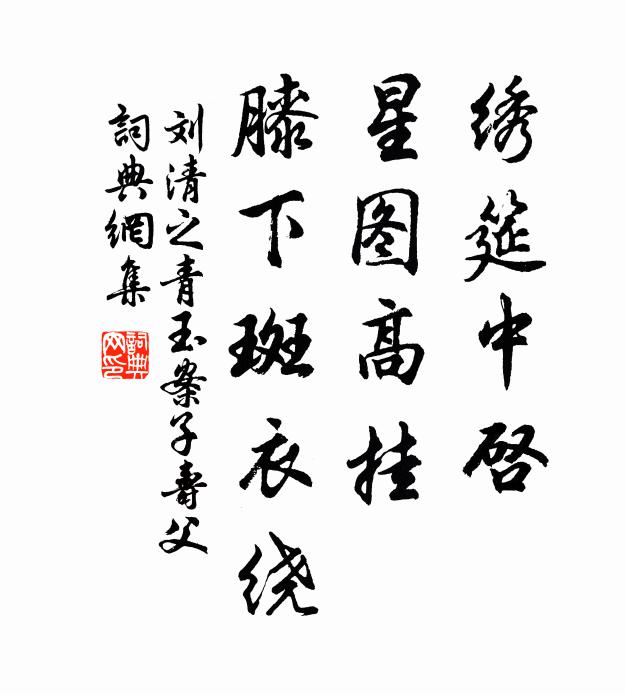 绣筵中启
星图高挂
膝下斑衣绕
刘清之青玉案子寿父
詞典網集
詞典网印